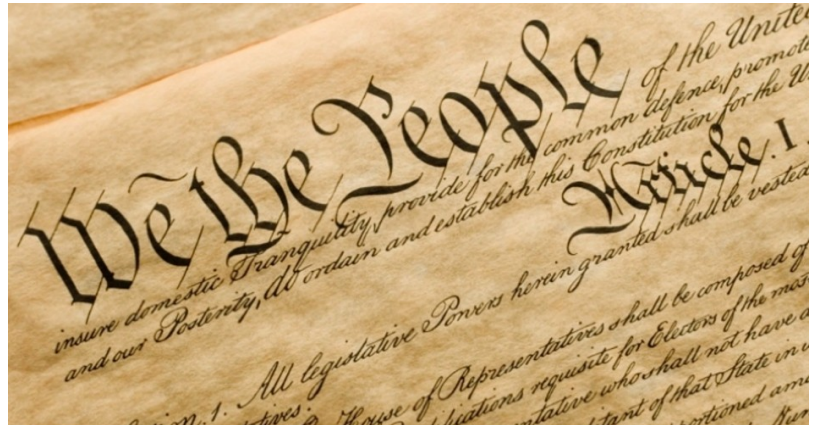 We the People of the United
insure domestic Tranquility, provide for the common defence, promote
and our Posterity, do ordain and establish this Constitution for the U
Article. I.
1. All legislative Powers herein granted shall be vested
House of Representatives shall be composed of
requisite for Electors of the most
who shall not have a
of that State in w